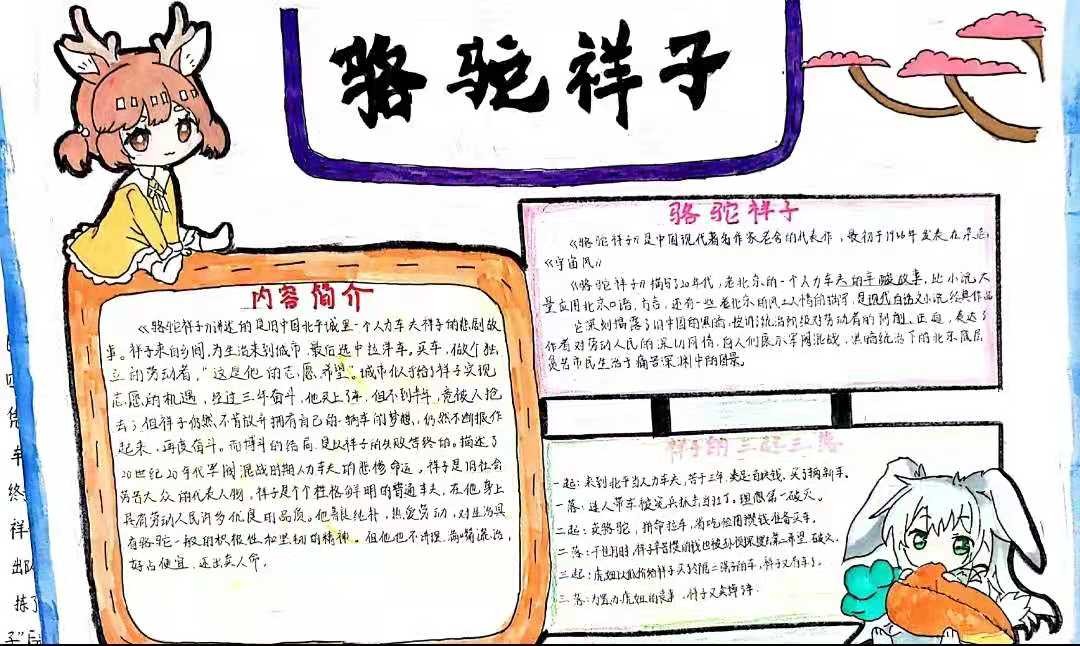 骆驼祥子
内容简介
《骆驼祥子》讲述的是旧中国北平城里一个人力车夫祥子的悲剧故
事。祥子来自乡间,为生活来到城市,最后选中拉洋车。买车,做个独
立的劳动者,"这是他的志愿、希望"。城市似乎给了祥子实现
志愿的机遇,经过三年奋斗,他买上了车,但不到半年,竟被人抢
去;但祥子仍然不肯放弃拥有自己的一辆车的梦想,仍然不断振作
起来,再度奋斗。而搏斗的结局,是以祥子的失败告终的。描述了
20世纪20年代军阀混战时期人力车夫的悲惨命运。祥子是旧社会
劳苦大众的代表人物,祥子是个性格鲜明的普通车夫,在他身上
具有劳动人民许多优良的品质。他善良纯朴,热爱劳动,对生活具
有骆驼一般的积极性和坚韧的精神。但他也不
好占便宜,还出卖人命。
骆驼祥子
《骆驼祥子》是中国现代著名作家老舍的代表作,最初于19年发表在
《宇宙风》
《骆驼祥子》描写了20年代,老北京的一个人力车夫的辛酸故事,此小说大
量应用北京口语,方言,还有一些老北京的风土人情的描写,是现代白话文小说经典作品
它深刻揭露了旧中国的黑暗,控诉了统治阶级对劳动者的剥削、压迫,表达了
作者对劳动人民的深切同情,向人们展示军阀混战,黑暗统治下的北京底层
贫苦市民生活于痛苦深渊中的图景。
祥子的三起三落
一起:来到北平当人力车夫,苦干三年,凑足百块钱,买了辆新车。
一落:连人带车被宪兵抓去当壮丁。理想第一次破灭。
二起:卖骆驼,拼命拉车,省吃俭用攒钱准备买车。
二落:干包月时,祥子辛苦攒的钱也被孙侦探第二希望破灭。
三起:虎妞以低价给祥子买了邻居二强子的车,祥子又有车了。
三落:为置办虎妞的丧事,祥子又卖掉了车